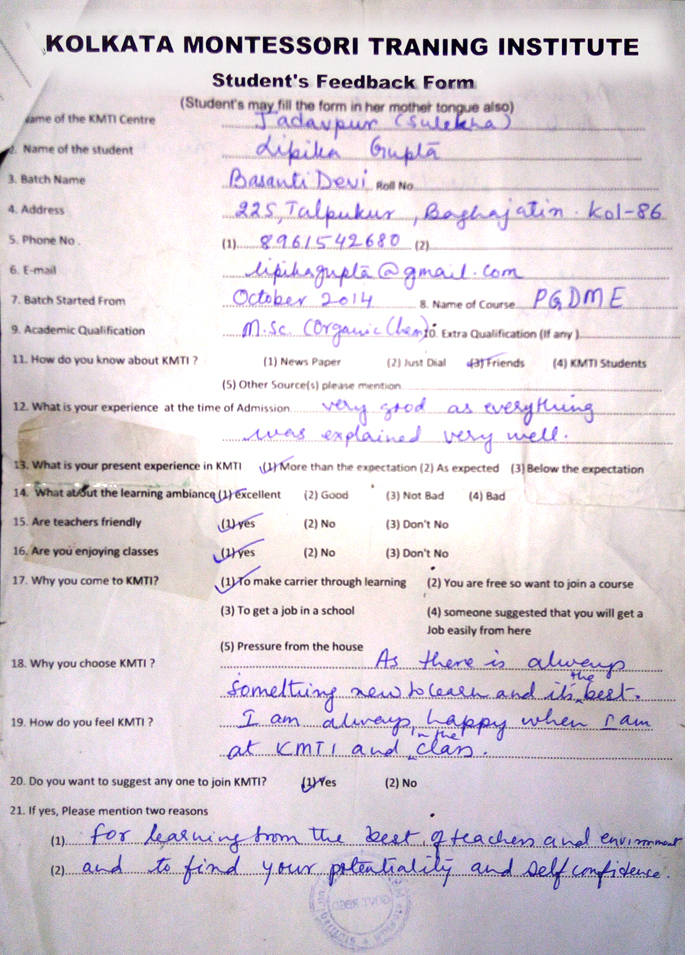 KOLKATA MONTESSORI TRANING INSTITUTE
Student's Feedback Form
(Student's may fill the form in her mother tongue also)
ame of the KMTI Centre Jadavpur (Sulekha)
2. Name of the student Lipika Guptā
3. Batch Name Basanti Devi Roll No
4. Address 225, Talpukur, Baghajatin. Kol-86
5. Phone No. (1) 8961542680 (2)
6. E-mail lipikaguptā@gmail.com
7. Batch Started From October 2014 8. Name of Course PGDME
9. Academic Qualification M.Sc. (Organic Chem) 10. Extra Qualification (If any)
11. How do you know about KMTI ? (1) News Paper (2) Just Dial (3) Friends (4) KMTI Students
(5) Other Source(s) please mention
12. What is your experience at the time of Admission very good as everything
was explained very well.
13. What is your present experience in KMTI (1) More than the expectation (2) As expected (3) Below the expectation
14. What about the learning ambiance (1) excellent (2) Good (3) Not Bad (4) Bad
15. Are teachers friendly (1) yes (2) No (3) Don't No
16. Are you enjoying classes (1) yes (2) No (3) Don't No
17. Why you come to KMTI? (1) To make carrier through learning (2) You are free so want to join a course
(3) To get a job in a school (4) someone suggested that you will get a
Job easily from here
(5) Pressure from the house
18. Why you choose KMTI ? As there is always
something new to learn and its the best.
19. How do you feel KMTI ? I am always happy when I am
at KMTI and in the class.
20. Do you want to suggest any one to join KMTI? (1) Yes (2) No
21. If yes, Please mention two reasons
(1) for learning from the best of teachers and environment
(2) and to find your potentiality and self confidence.